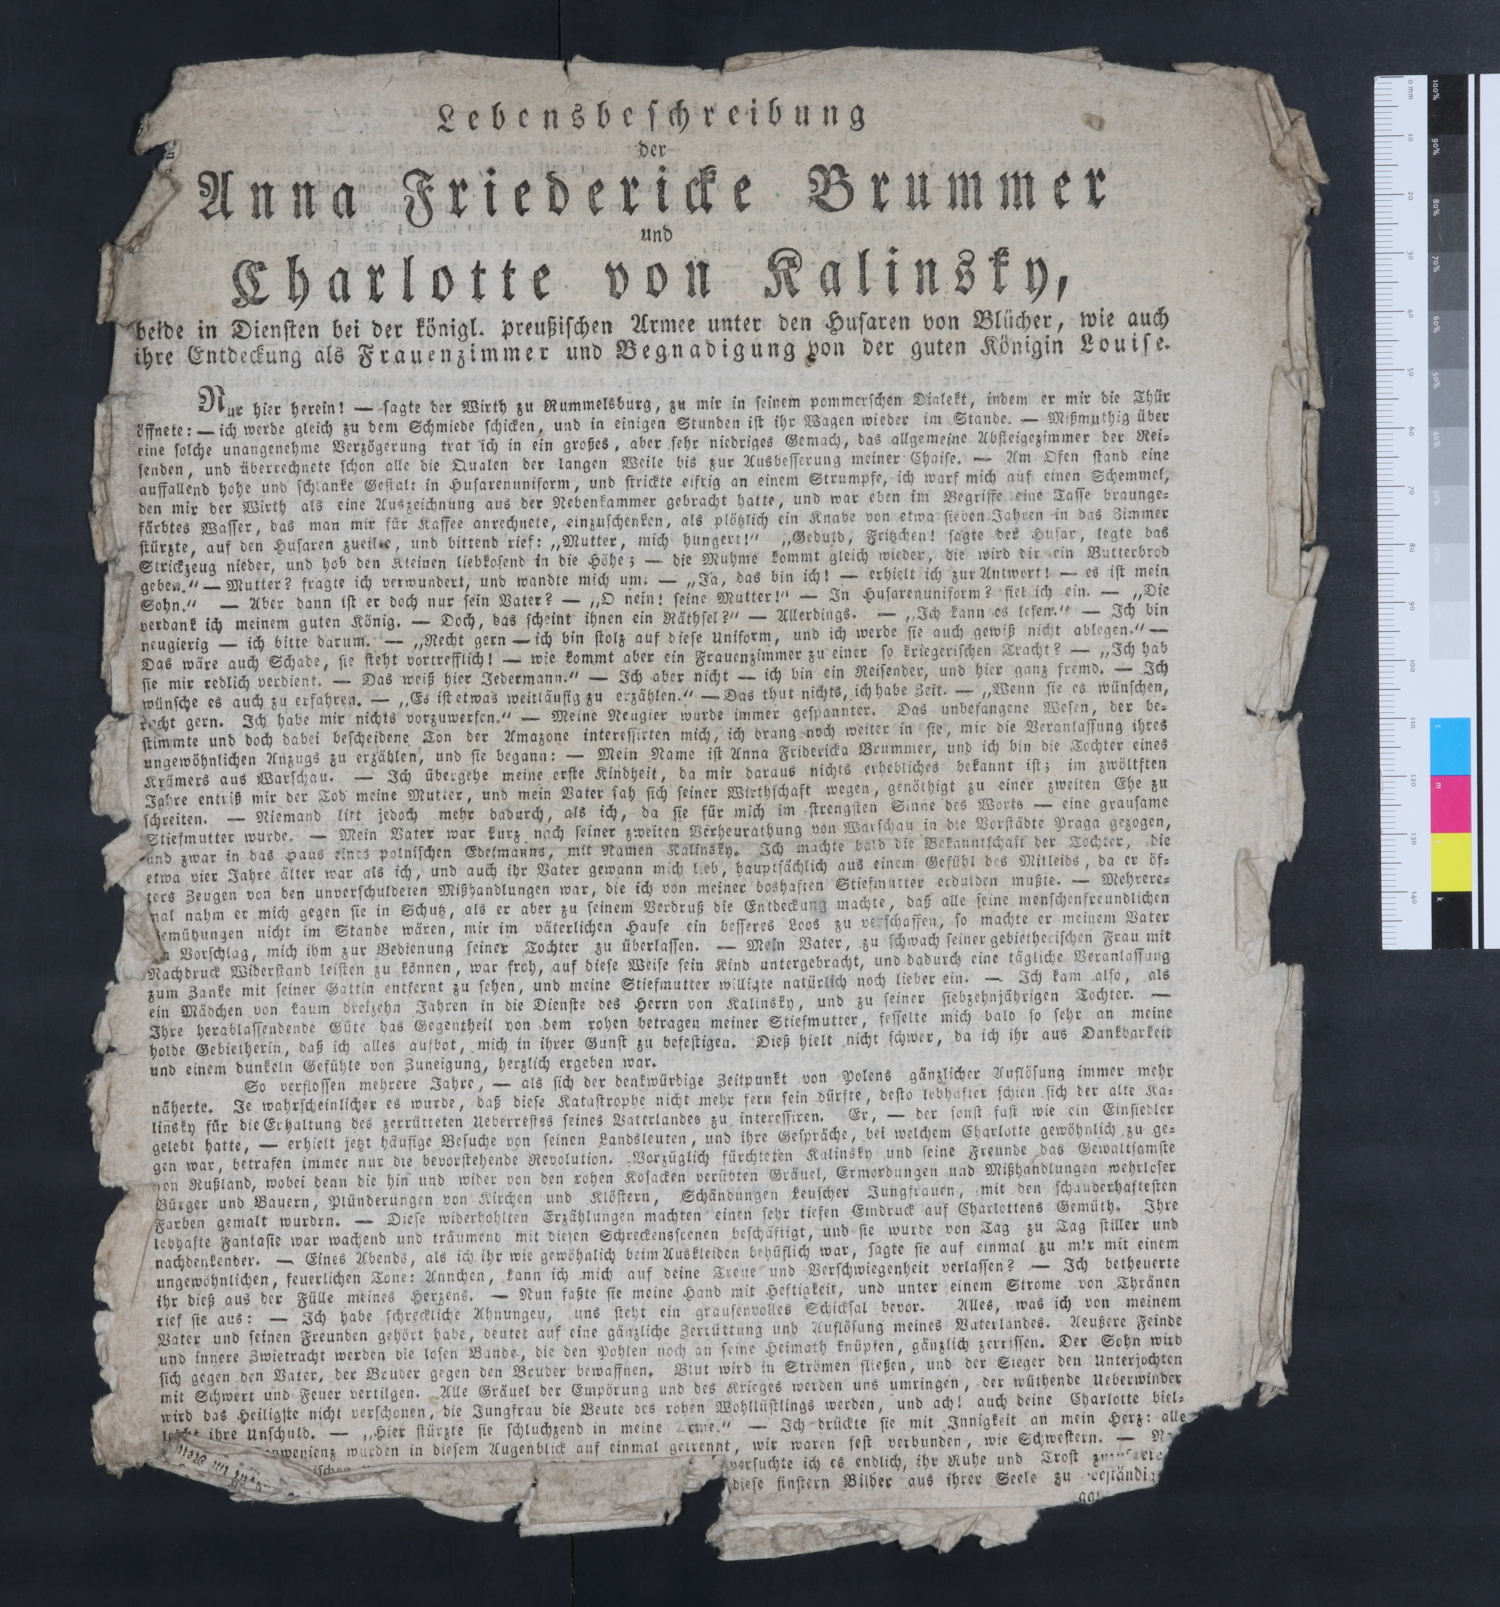 Lebensbeschreibung
der
Anna Friedericke Brummer
und
Charlotte von Kalinsky,
beide in Diensten bei der königl. preußischen Armee unter den Husaren von Blücher, wie auch
ihre Entdeckung als Frauenzimmer und Begnadigung von der guten Königin Louise.
Nur hier herein! — sagte der Wirth zu Rummelsburg, zu mir in seinem pommerschen Dialekt, indem er mir die Thür
öffnete: — ich werde gleich zu dem Schmiede schicken, und in einigen Stunden ist ihr Wagen wieder im Stande. — Mißmuthig über
eine solche unangenehme Verzögerung trat ich in ein großes, aber sehr niedriges Gemach, das allgemeine Absteigezimmer der Rei-
senden, und überrechnete schon alle die Qualen der langen Weile bis zur Ausbesserung meiner Chaise. — Am Ofen stand eine
auffallend hohe und schlanke Gestalt in Husarenuniform, und strickte eifrig an einem Strumpfe, ich warf mich auf einen Schemmel,
den mir der Wirth als eine Auszeichnung aus der Nebenkammer gebracht hatte, und war eben im Begriffe eine Tasse braunge-
färbtes Wasser, das man mir für Kaffee anrechnete, einzuschenken, als plötzlich ein Knabe von etwa sieben Jahren in das Zimmer
stürzte, auf den Husaren zueilte, und bittend rief: „Mutter, mich hungert!“ „Geduld, Fritzchen! sagte der Husar, legte das
Strickzeug nieder, und hob den Kleinen liebkosend in die Höhe; — die Muhme kommt gleich wieder, die wird dir ein Butterbrod
geben.“ — Mutter? fragte ich verwundert, und wandte mich um. — „Ja, das bin ich! — erhielt ich zur Antwort! — es ist mein
Sohn.“ — Aber dann ist er doch nur sein Vater? — „O nein! seine Mutter!“ — In Husarenuniform? fiel ich ein. — „Die
verdank ich meinem guten König. — Doch, das scheint ihnen ein Räthsel?“ — Allerdings. — „Ich kann es lesen.“ — Ich bin
neugierig — ich bitte darum. — „Recht gern — ich bin stolz auf diese Uniform, und ich werde sie auch gewiß nicht ablegen.“ —
Das wäre auch Schade, sie steht vortrefflich! — wie kommt aber ein Frauenzimmer zu einer so kriegerischen Tracht? — „Ich hab
sie mir redlich verdient. — Das weiß hier Jedermann.“ — Ich aber nicht — ich bin ein Reisender, und hier ganz fremd. — Ich
wünsche es auch zu erfahren. — „Es ist etwas weitläufig zu erzählen.“ — Das thut nichts, ich habe Zeit. — „Wenn sie es wünschen,
recht gern. Ich habe mir nichts vorzuwerfen.“ — Meine Neugier wurde immer gespannter. Das unbefangene Wesen, der be-
stimmte und doch dabei bescheidene Ton der Amazone interessirten mich, ich drang noch weiter in sie, mir die Veranlassung ihres
ungewöhnlichen Anzugs zu erzählen, und sie begann: — Mein Name ist Anna Fridericka Brummer, und ich bin die Tochter eines
Krämers aus Warschau. — Ich übergehe meine erste Kindheit, da mir daraus nichts erhebliches bekannt ist; im zwölften
Jahre entriß mir der Tod meine Mutter, und mein Vater sah sich seiner Wirthschaft wegen, genöthigt zu einer zweiten Ehe zu
schreiten. — Niemand litt jedoch mehr dadurch, als ich, da sie für mich im strengsten Sinne des Worts — eine grausame
Stiefmutter wurde. — Mein Vater war kurz nach seiner zweiten Verheurathung von Warschau in die Vorstädte Praga gezogen,
und zwar in das Haus eines polnischen Edelmanns, mit Namen Kalinsky. Ich machte bald die Bekanntschaft der Tochter, die
etwa vier Jahre älter war als ich, und auch ihr Vater gewann mich lieb, hauptsächlich aus einem Gefühl des Mitleids, da er öf-
ters Zeugen von den unverschuldeten Mißhandlungen war, die ich von meiner boshaften Stiefmutter erdulden mußte. — Mehrere-
mal nahm er mich gegen sie in Schutz, als er aber zu seinem Verdruß die Entdeckung machte, daß alle seine menschenfreundlichen
Bemühungen nicht im Stande wären, mir im väterlichen Hause ein besseres Loos zu verschaffen, so machte er meinem Vater
Vorschlag, mich ihm zur Bedienung seiner Tochter zu überlassen. — Mein Vater, zu schwach seiner gebietherischen Frau mit
Nachdruck Widerstand leisten zu können, war froh, auf diese Weise sein Kind untergebracht, und dadurch eine tägliche Veranlassung
zum Zanke mit seiner Gattin entfernt zu sehen, und meine Stiefmutter willigte natürlich noch lieber ein. — Ich kam also, als
ein Mädchen von kaum dreizehn Jahren in die Dienste des Herrn von Kalinsky, und zu seiner siebzehnjährigen Tochter. —
Ihre herablassendende Güte das Gegentheil von dem rohen betragen meiner Stiefmutter, fesselte mich bald so sehr an meine
holde Gebietherin, daß ich alles aufbot, mich in ihrer Gunst zu befestigen. Dieß hielt nicht schwer, da ich ihr aus Dankbarkeit
und einem dunkeln Gefühle von Zuneigung, herzlich ergeben war.
So verflossen mehrere Jahre, — als sich der denkwürdige Zeitpunkt von Polens gänzlicher Auflösung immer mehr
näherte. Je wahrscheinlicher es wurde, daß diese Katastrophe nicht mehr fern sein dürfte, desto lebhafter schien sich der alte Ka-
linsky für die Erhaltung des zerrütteten Ueberrestes seines Vaterlandes zu interessiren. Er, — der sonst fast wie ein Einsiedler
gelebt hatte, — erhielt jetzt häufige Besuche von seinen Landsleuten, und ihre Gespräche, bei welchem Charlotte gewöhnlich zu ge-
gen war, betrafen immer nur die bevorstehende Revolution. Vorzüglich fürchteten Kalinsky und seine Freunde das Gewaltsamste
von Rußland, wobei denn die hin und wider von den rohen Kosacken verübten Gräuel, Ermordungen und Mißhandlungen wehrloser
Bürger und Bauern, Plünderungen von Kirchen und Klöstern, Schändungen keuscher Jungfrauen, mit den schauderhaftesten
Farben gemalt wurdrn. — Diese widerhohlten Erzählungen machten einen sehr tiefen Eindruck auf Charlottens Gemüth. Ihre
lebhafte Fantasie war wachend und träumend mit diesen Schreckensscenen beschäftigt, und sie wurde von Tag zu Tag stiller und
nachdenkender. — Eines Abends, als ich ihr wie gewöhnlich beim Auskleiden behüflich war, sagte sie auf einmal zu mir mit einem
ungewöhnlichen, feuerlichen Tone: Annchen, kann ich mich auf deine Treue und Verschwiegenheit verlassen? — Ich betheuerte
ihr dieß aus der Fülle meines Herzens. — Nun faßte sie meine Hand mit Heftigkeit, und unter einem Strome von Thränen
rief sie aus: — Ich habe schreckliche Ahnungen, uns steht ein grausenvolles Schicksal bevor. Alles, was ich von meinem
Vater und seinen Freunden gehört habe, deutet auf eine gänzliche Zerrüttung und Auflösung meines Vaterlandes. Aeußere Feinde
und innere Zwietracht werden die losen Bande, die den Pohlen noch an seine Heimath knüpfen, gänzlich zerrissen. Der Sohn wird
sich gegen den Vater, der Bruder gegen den Bruder bewaffnen. Blut wird in Strömen fließen, und der Sieger den Unterjochten
mit Schwert und Feuer vertilgen. Alle Gräuel der Empörung und des Krieges werden uns umringen, der wüthende Ueberwinder
wird das Heiligste nicht verschonen, die Jungfrau die Beute des rohen Wohllüstlings werden, und ach! auch deine Charlotte viel-
leicht ihre Unschuld. — „Hier stürzte sie schluchzend in meine Arme.“ — Ich drückte sie mit Innigkeit an mein Herz: alle
wurden in diesem Augenblick auf einmal getrennt, wir waren fest verbunden, wie Schwestern. —
versuchte ich es endlich, ihr Ruhe und Trost
diese finstern Bilder aus ihrer Seele zu